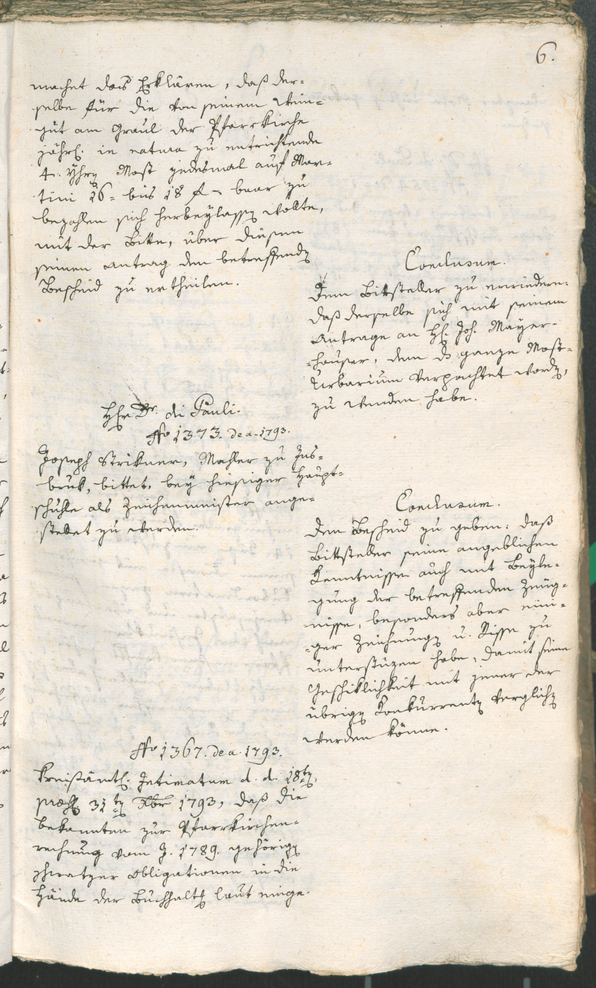 6.
machet das Erklären, daß der-
selbe für die von seinem Wein-
gut am Graul der Pfarrkirche
jährl. in natura zu entrichtende
4. Yhrn Most jedesmal auf Mar-
tini 16- bis 18 f baar zu
bezahlen sich herbeylassen wollte,
mit der Bitte, über diesen
seinen Antrag den betreffenden
Bescheid zu ertheilen.
Conclusum.
Dem Bittsteller zu erwiedern:
daß derselbe sich mit seinem
Antrage an H. Joh. Mayer-
hauser, dem das ganze Most-
Urbarium verpachtet worden,
zu wenden habe.
Hh. Dr. di Pauli.
No 1373. de a. 1793.
Joseph Strikner, Mahler zu Ins-
bruk, bittet, bey hiesiger Haupt-
schuhle als Zeichenmeister ange-
stellet zu werden.
Conclusum.
Dem Bescheid zu geben: daß
Bittsteller seine angeblichen
Kenntnissen auch mit Beyle-
gung der betreffenden Zeug-
nisse, besonders aber eini-
ger Zeichnungen u. Risse zu
unterstüzen habe, damit seine
Geschiklichkeit mit jener der
übrigen Konkurrenten verglichen
werden könne.
No 1367. de a. 1793.
Kreisämtl. Intimatum d. d. 18ten,
praes. 31ten Xber 1793, daß die
bekannten zur Pfarrkirchen-
rechnung vom J. 1789. gehörigen
schwatzer Obligationen in die
Hände der Buchhaltg laut einge-